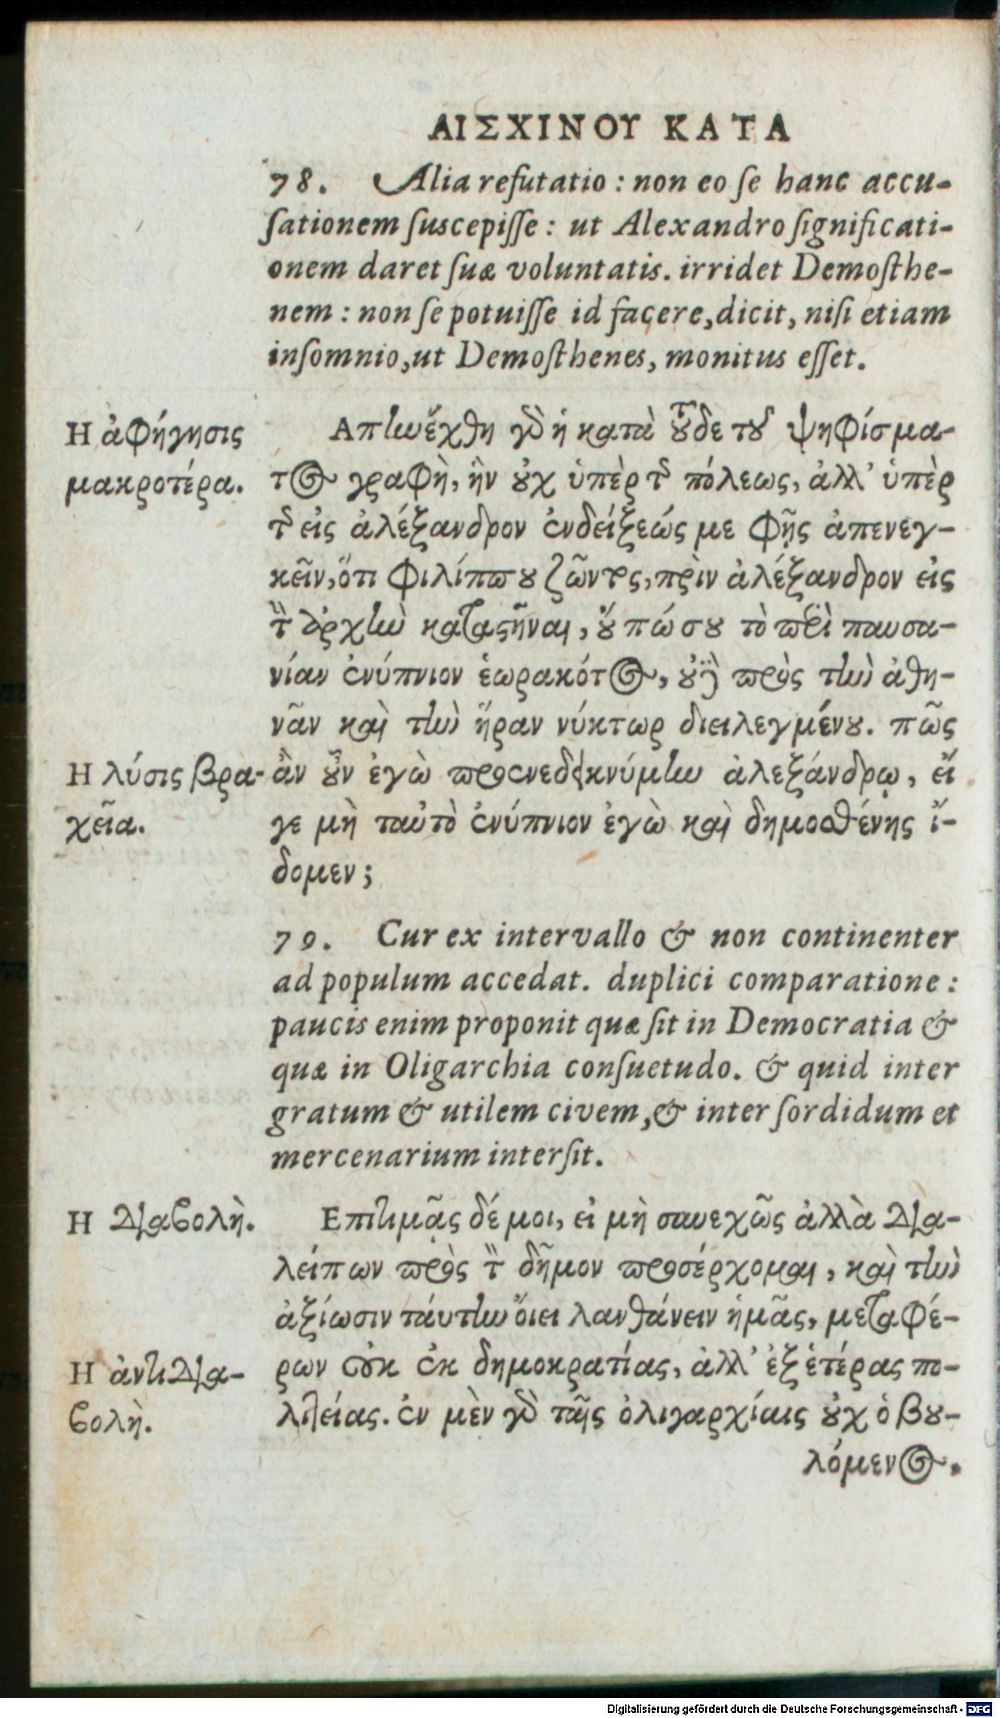 ΑΙΣΧΙΝΟΥ ΚΑΤΑ
78. Alia refutatio : non eo se hanc accu-
sationem suscepisse : ut Alexandro significati-
onem daret suæ voluntatis. irridet Demosthe-
nem : non se potuisse id facere, dicit, nisi etiam
insomnio, ut Demosthenes, monitus esset.
Η ἀφήγησις
μακροτέρα.
Απηνέχθη γὸ ἡ κατὰ τοῦδε τοῦ ψηφίσμα-
τος γραφὴ, ἣν οὐχ ὑπὲρ τῆς πόλεως, ἀλλ' ὑπὲρ
τῆς εἰς ἀλέξανδρον ἐνδείξεώς με φῂς ἀπενεγ-
κεῖν, ὅτι φιλίππου ζῶντος, πρὶν ἀλέξανδρον εἰς
τὴν ἀρχὴν καταστῆναι, οὔπω σοῦ τὸ περὶ παυσα-
νίαν ἐνύπνιον ἑωρακότος, οὐδὲ πρὸς τὴν ἀθη-
νᾶν καὶ τὴν ἥραν νύκτωρ διειλεγμένου. πῶς
Η λύσις βρα-
χεῖα.
ἂν οὖν ἐγὼ προενεδεικνύμην ἀλεξάνδρῳ, εἴ
γε μὴ ταὐτὸ ἐνύπνιον ἐγὼ καὶ δημοσθένης ἴ-
δομεν;
79. Cur ex intervallo & non continenter
ad populum accedat. duplici comparatione :
paucis enim proponit quæ sit in Democratia &
quæ in Oligarchia consuetudo. & quid inter
gratum & utilem civem, & inter sordidum et
mercenarium intersit.
Η διαβολὴ.
Επιτιμᾷς δέ μοι, εἰ μὴ συνεχῶς ἀλλὰ δια-
λείπων πρὸς τὸν δῆμον προσέρχομαι, καὶ τὴν
ἀξίωσιν τάυτην ὄιει λανθάνειν ἡμᾶς, μεταφέ-
Η ἀντιδια-
βολὴ.
ρων οὐκ ἐκ δημοκρατίας, ἀλλ' ἐξ ἑτέρας πο-
λιτείας. ἐν μὲν γὸ ταῖς ὀλιγαρχίαις οὐχ ὁ βου-
λόμενος.
Digitalisierung gefördert durch die Deutsche Forschungsgemeinschaft - DFG